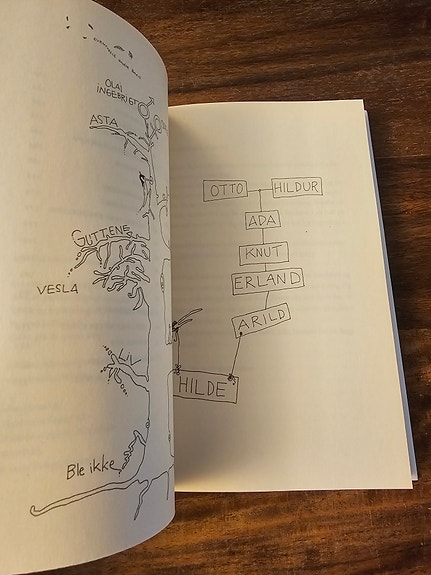 OLAI
INGEBRIGT
ASTA
GUTTENE
VESLA
LIV
Ble ikke
OTTO HILDUR
ADA
KNUT
ERLAND
ARILD
HILDE